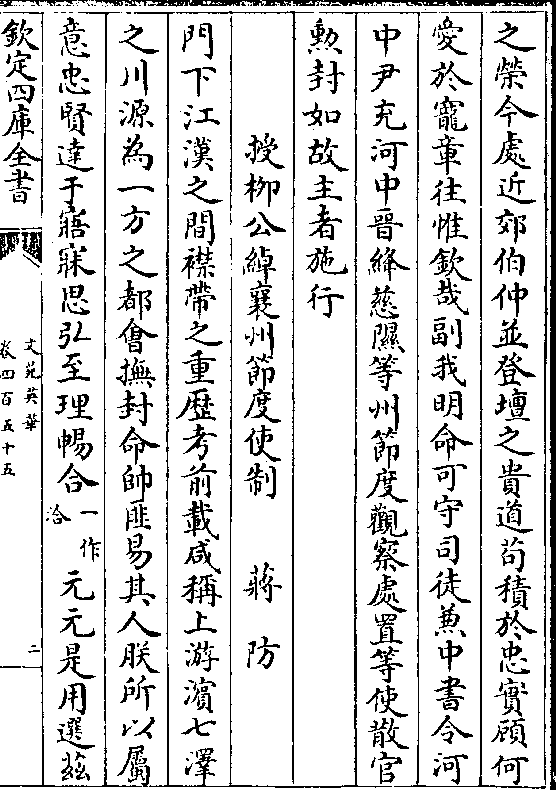 之榮今處近郊伯仲並登壇之貴道茍積於忠實顧何
愛於寵章往惟欽哉副我明命可守司徒兼中書令河
中尹充河中晉絳慈隰等州節度觀察處置等使散官
勲封如故主者施行
授柳公綽襄州節度使制 蔣防
門下江漢之間襟帶之重歷考前載咸稱上游濵七澤
之川源為一方之都會撫封命帥匪易其人朕所以屬
意忠賢達于寤寐思弘至理暢合一作洽元元是用選茲
欽定四庫全書
文苑英華
卷四百五十五
二